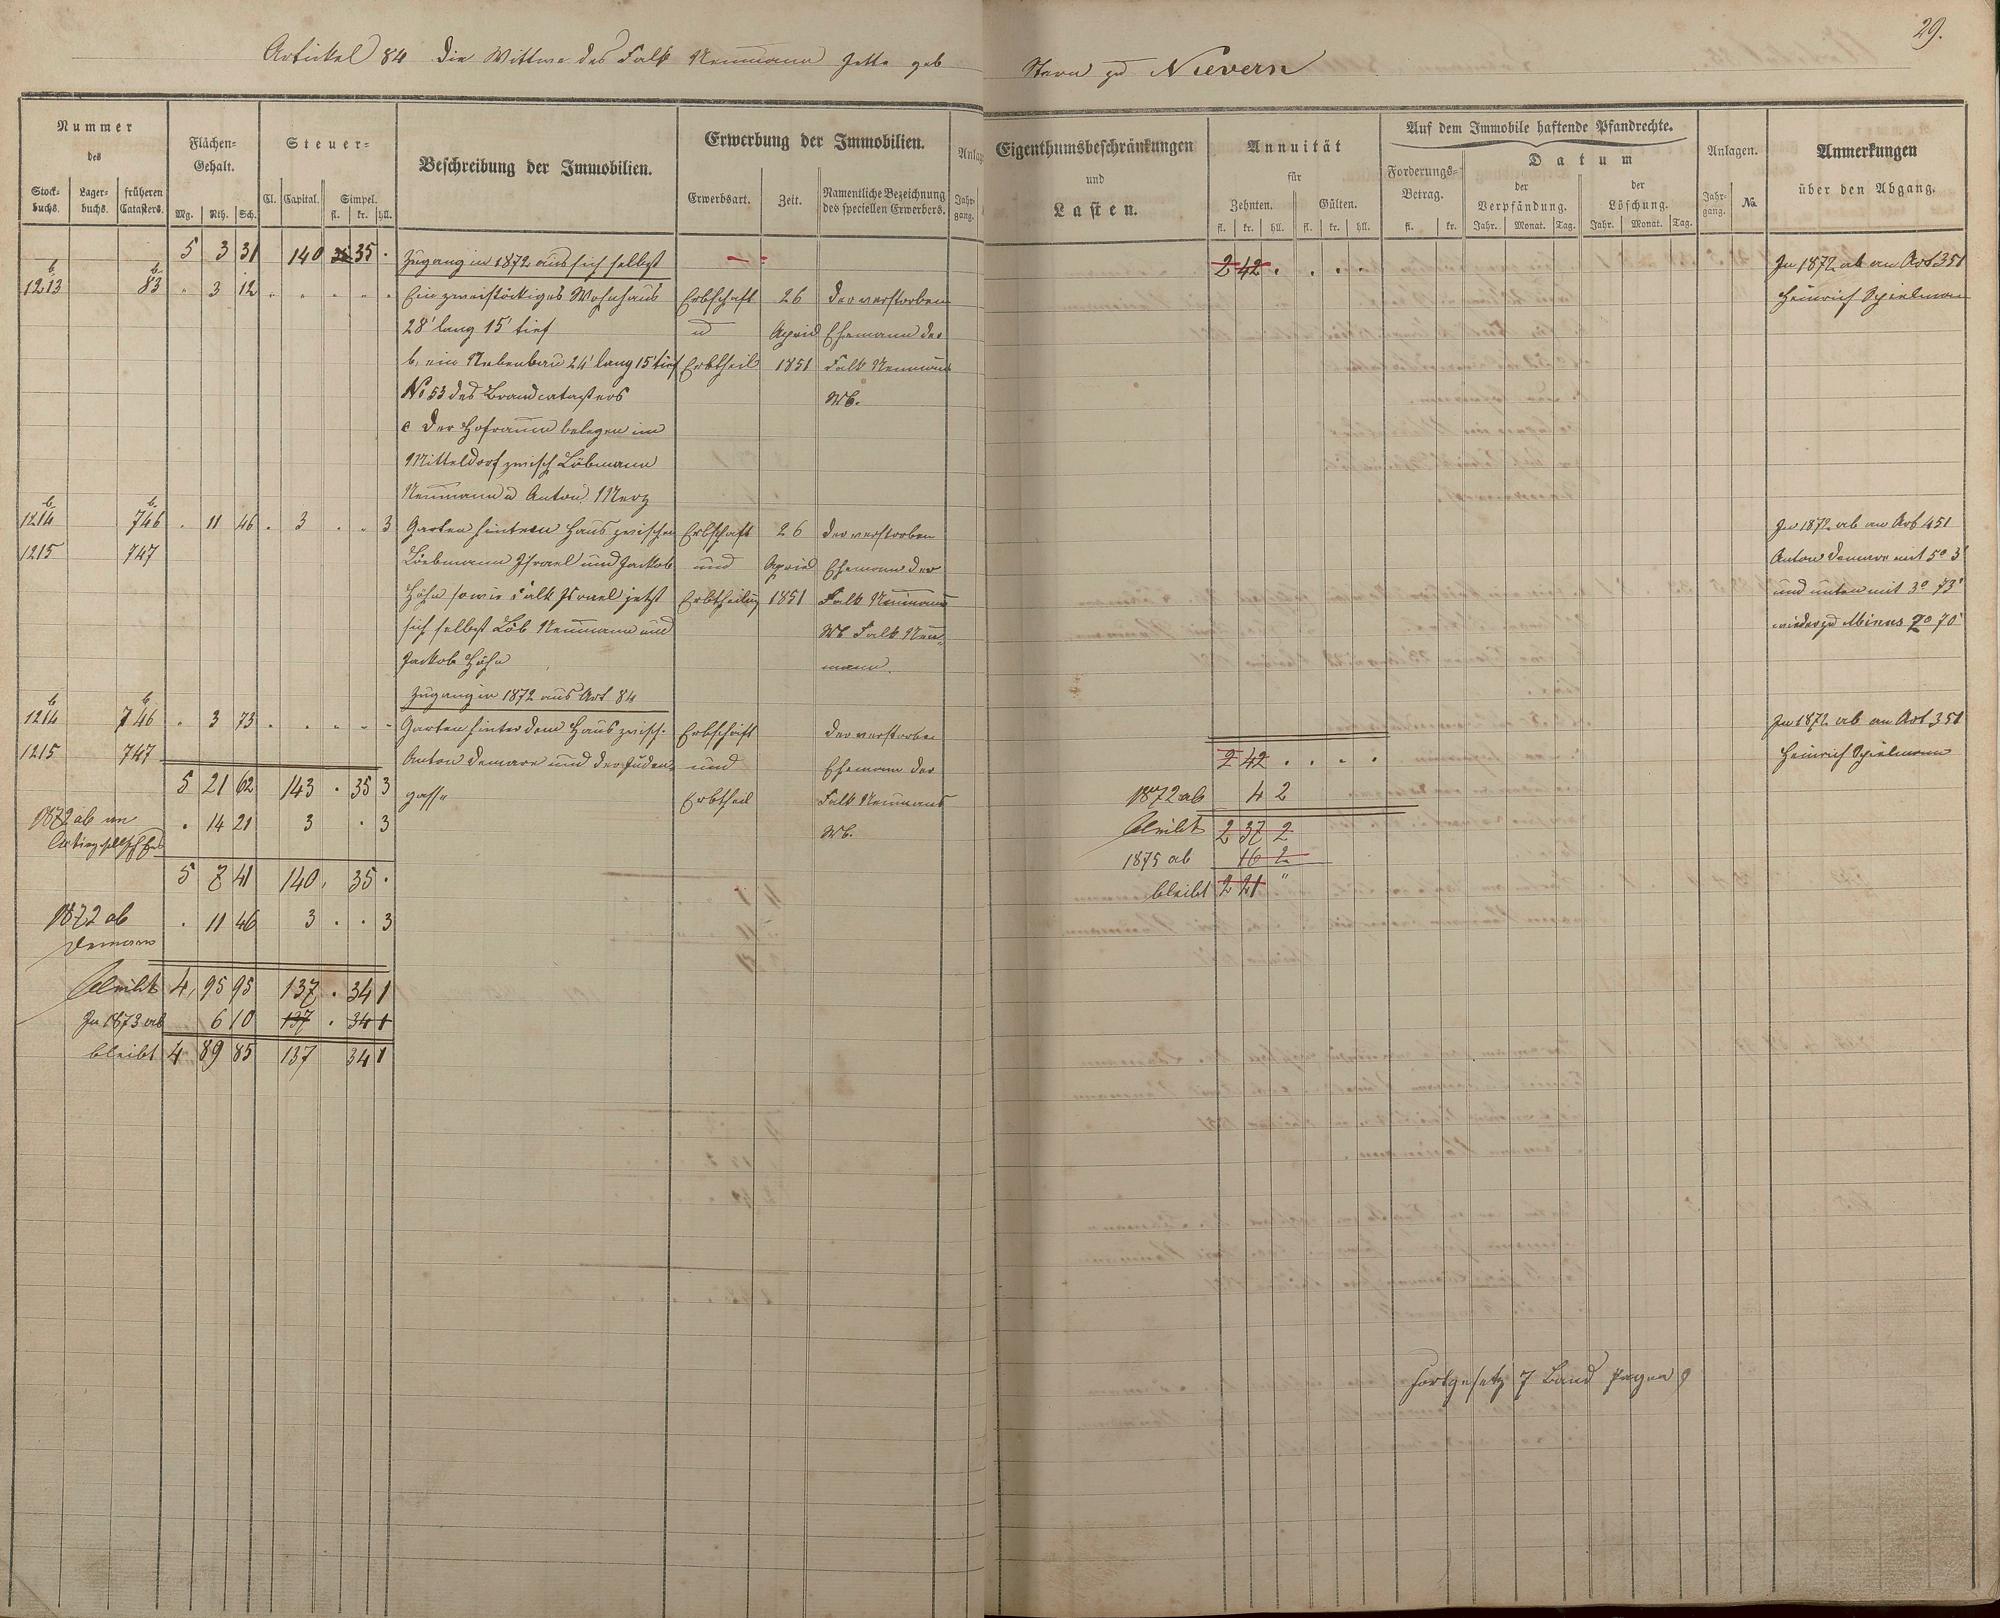 29.
Artikel 84 Die Wittwe des Falk Neumann Jette geb Stern zu Nievern
Nummer
des
Stock-
buchs.
Lager-
buchs.
früheren
Catasters.
Flächen-
Gehalt.
Mg. Rth. Sch.
Steuer-
Cl. Capital. Simpel.
fl. kr. hll.
Beschreibung der Immobilien.
Erwerbung der Immobilien.
Erwerbsart. Zeit. Namentliche Bezeichnung
des speciellen Erwerbers.
Anlag
Jahr-
gang.
Eigenthumsbeschränkungen
und
Lasten.
Annuität
für
Zehnten. Gülten.
fl. kr. hll. fl. kr. hll.
Auf dem Immobile haftende Pfandrechte.
Forderungs-
Betrag.
fl. kr.
Datum
der
Verpfändung.
Jahr. Monat. Tag.
der
Löschung.
Jahr. Monat. Tag.
Anlagen.
Jahr-
gang. No.
Anmerkungen
über den Abgang.
5 3 31 140 35 . Zugang in 1872 aus sich selbst 2 42 . . . . In 1872 ab an Art 351
b b
1213 83 " 3 12 " " " " " Ein zweistöckiges Wohnhaus Erbschaft 26 der verstorben Heinrich Spielmann
28' lang 15' tief u April Ehemann der
b, ein Nebenbau 24' lang 15' tief Erbtheil 1851 Falk Neumann
No 53 des Brandcatasters Wb.
c Der Hofraum belegen im
Mitteldorf zwisch Löbmann
Neumann u Anton Merz
b b
1214 746 . 11 46 . 3 . . 3 Garten hinterm Haus zwischen Erbschaft 26 der verstorben In 1872 ab an Art 451
1215 747 Löbmann Israel und Jackob und April Ehemann der Anton Demare mit 5° 3'
Höhn sowie Falk Israel jetzt Erbtheilung 1851 Falk Neumann und unten mit 3° 73'
sich selbst Löb Neumann und Wb Falk Neu- wieder zu Minus 2° 70'
Jackob Höhn mann.
Zugang in 1872 aus Art 84
b b
1214 746 . 3 73 . . . . . Garten hinter dem Haus zwisch. Erbschaft der verstorben In 1872 ab an Art 351
1215 747 Anton Demare und der Juden- und Ehemann der 2 42 . . . . Heinrich Spielmann
5 21 62 143 . 35 3 gasse Erbtheil Falk Neumann 1872 ab 4 2
1872 ab an . 14 21 3 . 3 Wb. bleibt 2 37 2
1875 ab 16 2
5 7 41 140 . 35 . bleibt 2 21 "
1872 ab . 11 46 3 . . 3
Demare
bleibt 4 95 95 137 . 34 1
In 1873 ab 6 10 137 . 34 1
bleibt 4 89 85 137 34 1
Fortgesetz 7 Band Pagna 9